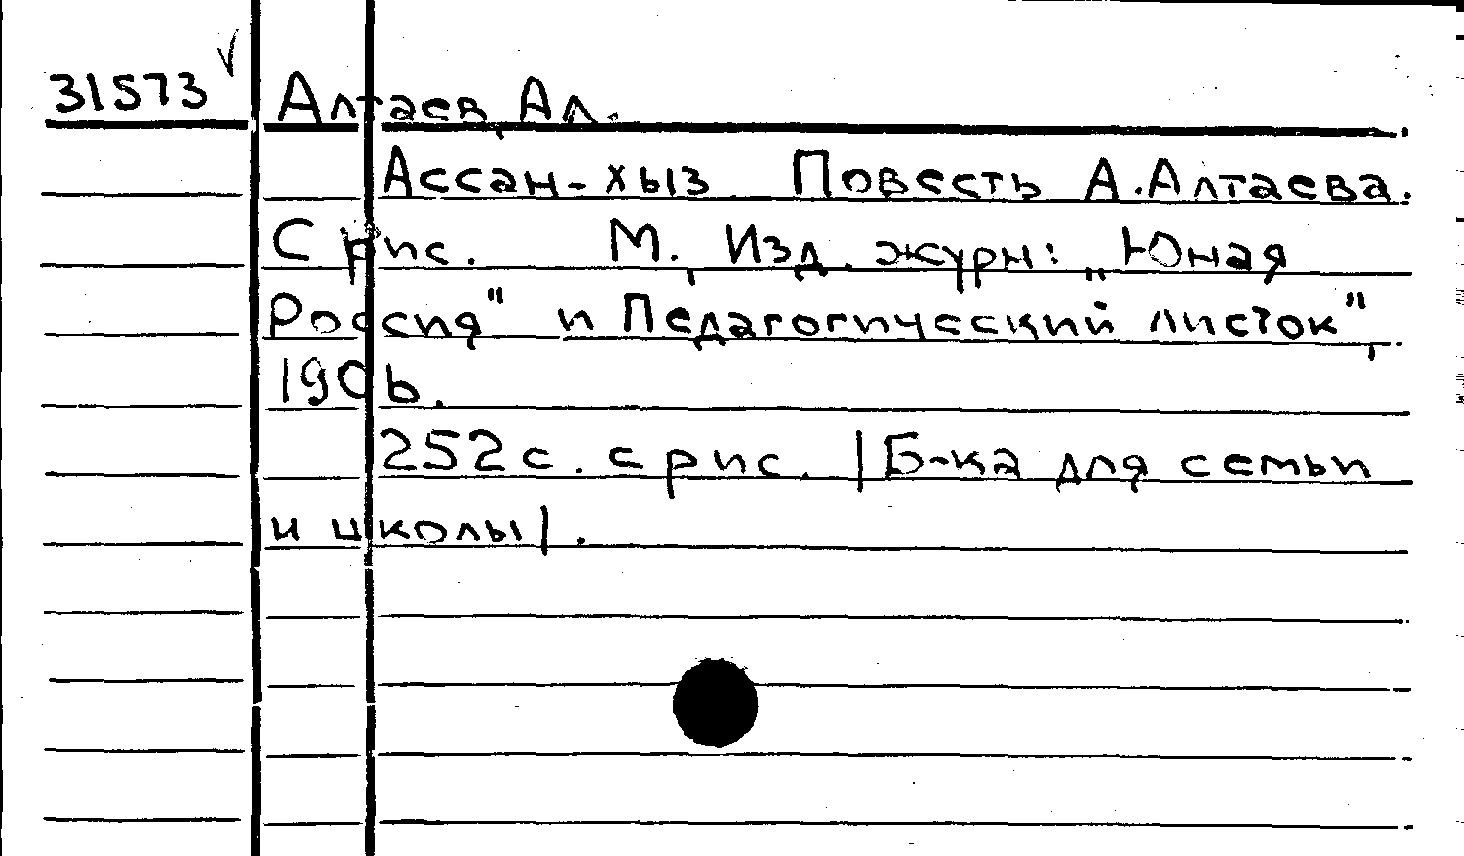 31573 Алтаев, Ал.
Ассан-хыз Повесть А. Алтаева.
С рис. М., Изд. журн: „Юная
Россия" и Педагогический листок",
1906.
252 с. с рис. |Б-ка для семьи
и школы|.